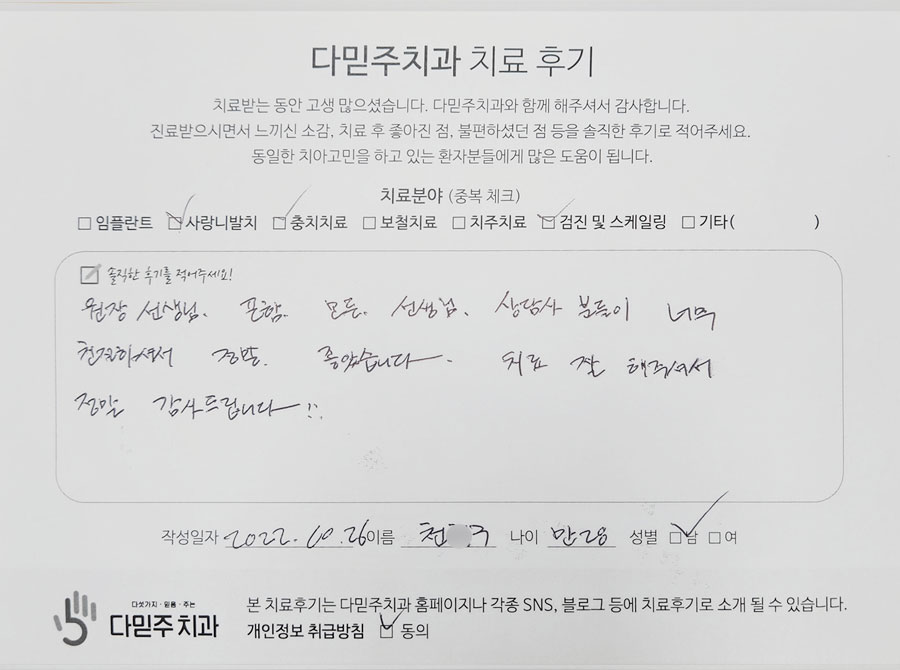 다믿주치과 치료 후기
치료받는 동안 고생 많으셨습니다. 다믿주치과와 함께 해주셔서 감사합니다.
진료받으시면서 느끼신 소감, 치료 후 좋아진 점, 불편하셨던 점 등을 솔직한 후기로 적어주세요.
동일한 치아고민을 하고 있는 환자분들에게 많은 도움이 됩니다.
치료분야 (중복 체크)
☐ 임플란트 ☑ 사랑니발치 ☑ 충치치료 ☐ 보철치료 ☐ 치주치료 ☑ 검진 및 스케일링 ☐ 기타( )
솔직한 후기를 적어주세요!
원장 선생님. 포함. 모든. 선생님. 상담사 분들이 너무
친절하셔서 정말. 좋았습니다. 치료 잘 해주셔서
정말 감사드립니다!!
작성일자 2022. 10. 26 이름 천 나이 만28 성별 ☑ 남 ☐ 여
다섯가지·믿음·주는
다믿주치과
본 치료후기는 다믿주치과 홈페이지나 각종 SNS, 블로그 등에 치료후기로 소개 될 수 있습니다.
개인정보 취급방침 ☑ 동의